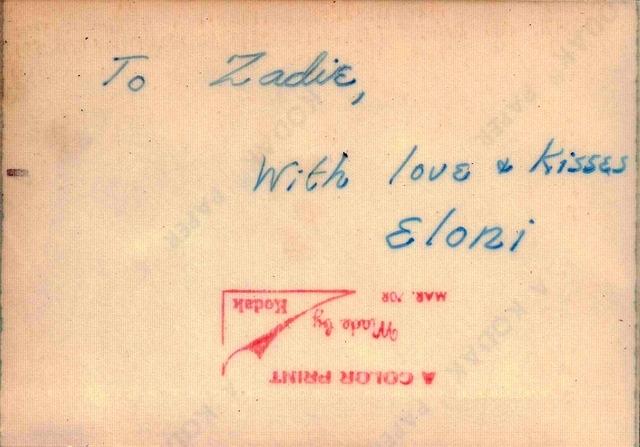 To Zadie,
With love & Kisses
Eloni
A COLOR PRINT
Made by
Kodak
MAR. 70R
A KODAK PAPER